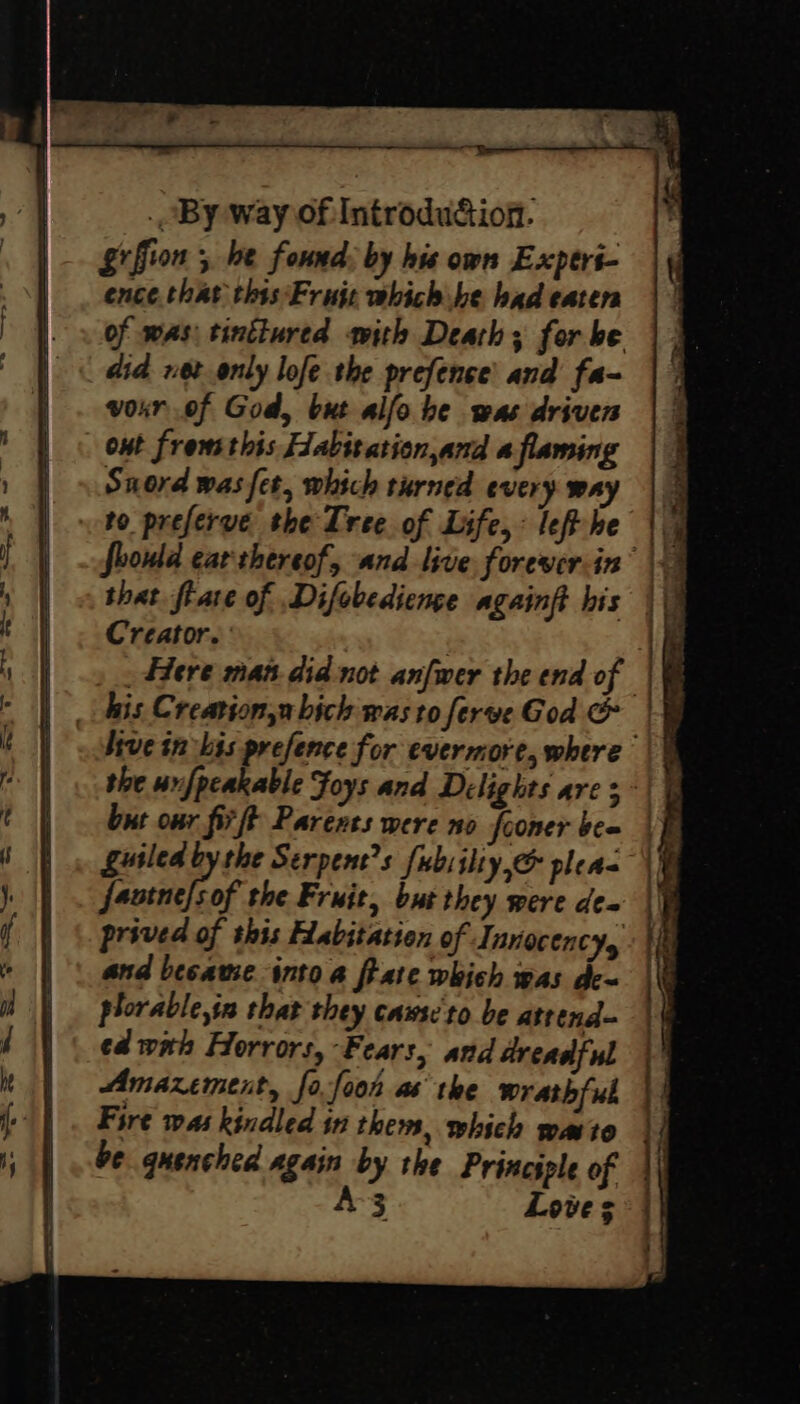 By way of Introduction.
grſſion ; he found by his own Experi-
ence that this Fruit which he had eaten
of was tinctured with Death ; for he
did not only loſe the preſence and fa-
vour of God, but alſo he was driven
out from this Habitation, and a flaming
Sword was ſet, which turned every way
to preſerve the Tree of Life, leſt he
ſhould eat thereof, and live forever in
that ſtate of Diſobedience againſt his
Creator.
Here man did not anſwer the end of
his Creation, which was to ſerve God &
live in his preſence for evermore, where
the unſpeakable Joys and Delights are ;
but our firſt Parents were no ſooner be-
guiled by the Serpent's ſubtilty, & plea-
ſantneſs of the Fruit, but they were de-
prived of this Habitation of Innocency,
and became into a ſtate which was de-
plorable, in that they came to be attend-
ed with Horrors, Fears, and dreadful
Amazement, ſo ſoon as the wrathful
Fire was kindled in them, which was to
be quenched again by the Principle of
A 3 Love ;